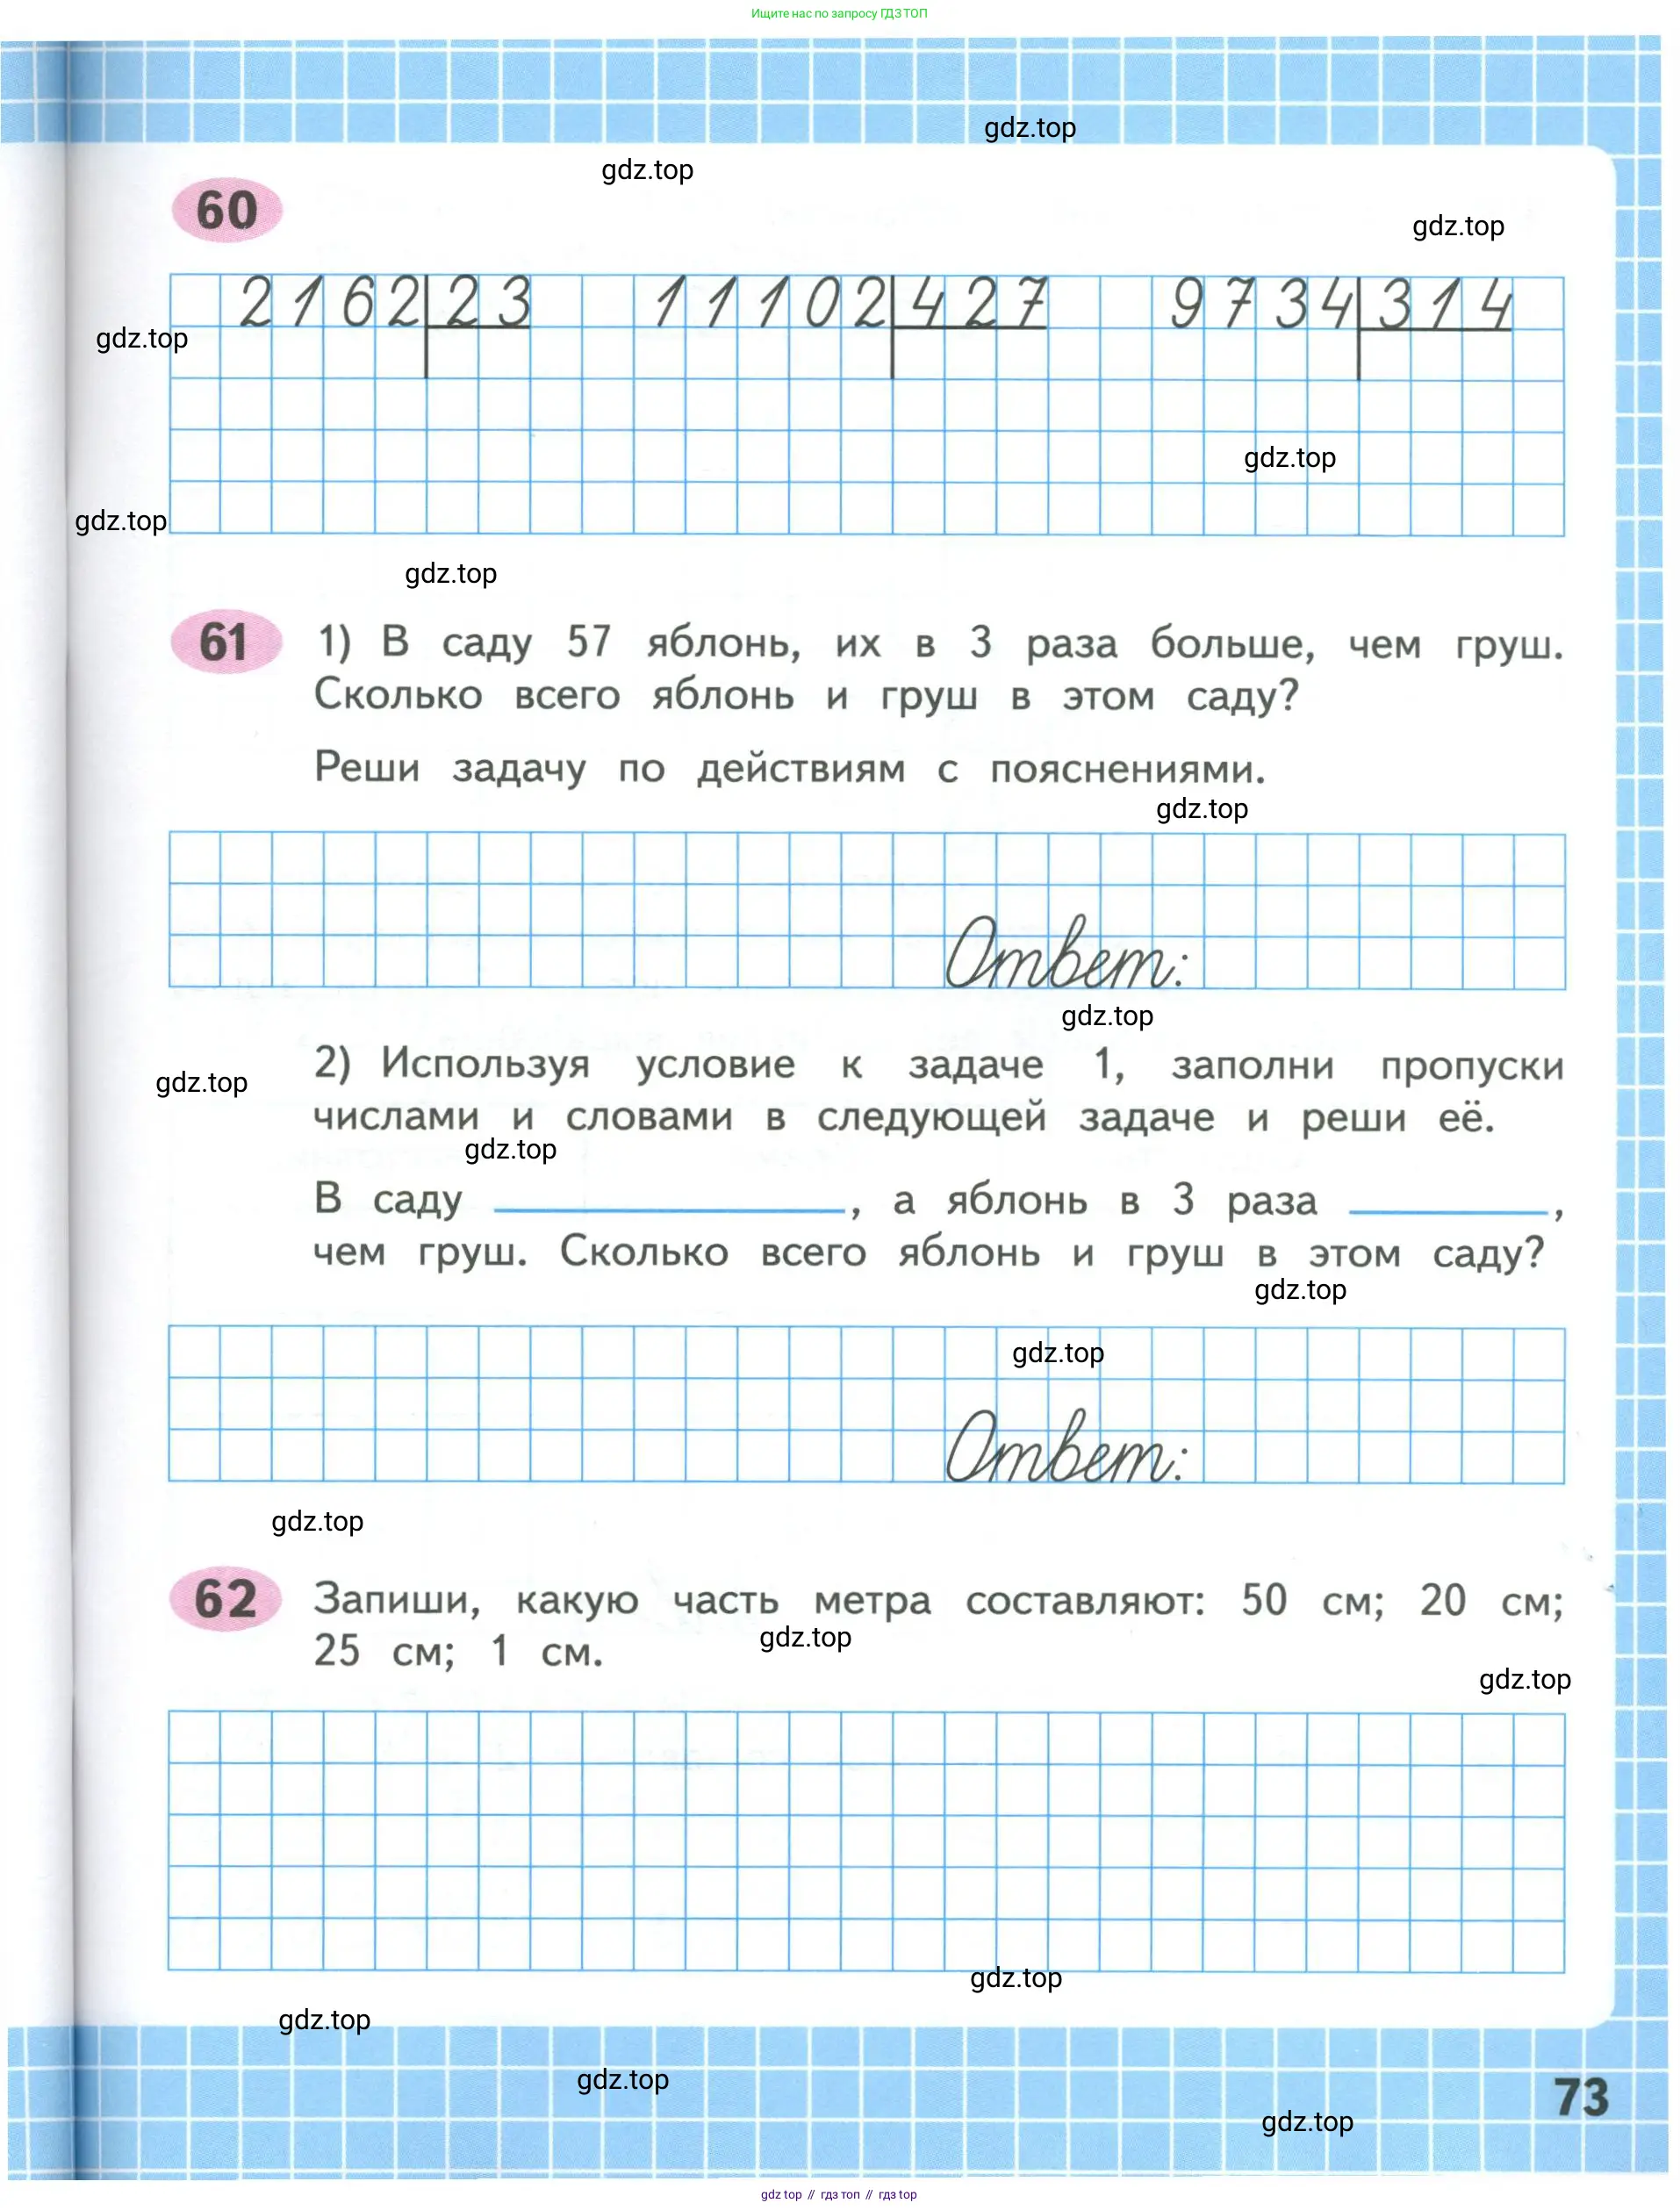 Ищите нас по запросу ГДЗ ТОП
gdz.top
gdz.top
60
gdz.top
2162 23 11102 427 9734 314
gdz.top
gdz.top
gdz.top
gdz.top
61 1) В саду 57 яблонь, их в 3 раза больше, чем груш.
Сколько всего яблонь и груш в этом саду?
Реши задачу по действиям с пояснениями.
gdz.top
Ответ:
gdz.top
2) Используя условие к задаче 1, заполни пропуски
gdz.top
числами и словами в следующей задаче и реши её.
gdz.top
В саду , а яблонь в 3 раза ,
чем груш. Сколько всего яблонь и груш в этом саду?
gdz.top
gdz.top
Ответ:
gdz.top
62 Запиши, какую часть метра составляют: 50 см; 20 см;
25 см; 1 см.
gdz.top
gdz.top
gdz.top
gdz.top
gdz.top
73
gdz.top
gdz top // гдз топ // гдз top